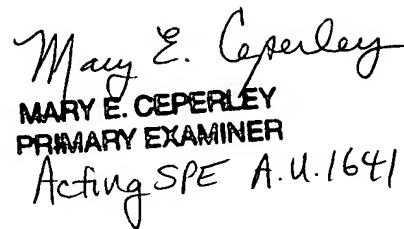 Mary E. Ceperley
MARY E. CEPERLEY
PRIMARY EXAMINER
Acting SPE A.U. 1641